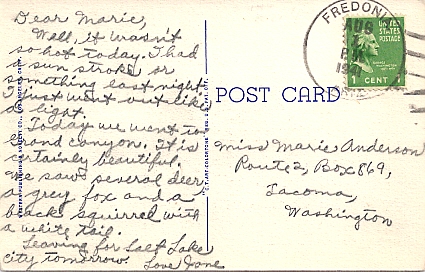 Dear Marie,
Well, it wasn't
so hot today. I had
a sun stroke or
something last night.
I just went out like
a light.
Today we went to
Grand Canyon. It is
certainly beautiful.
We saw several deer
a grey fox and a
black squirrel with
a white tail.
Leaving for Salt Lake
City tomorrow. Love Jane
POST CARD
FREDONIA
AUG
PM
UNITED
STATES
POSTAGE
1 CENT 1
Miss Marie Anderson
Route 2, Box 869,
Tacoma,
Washington